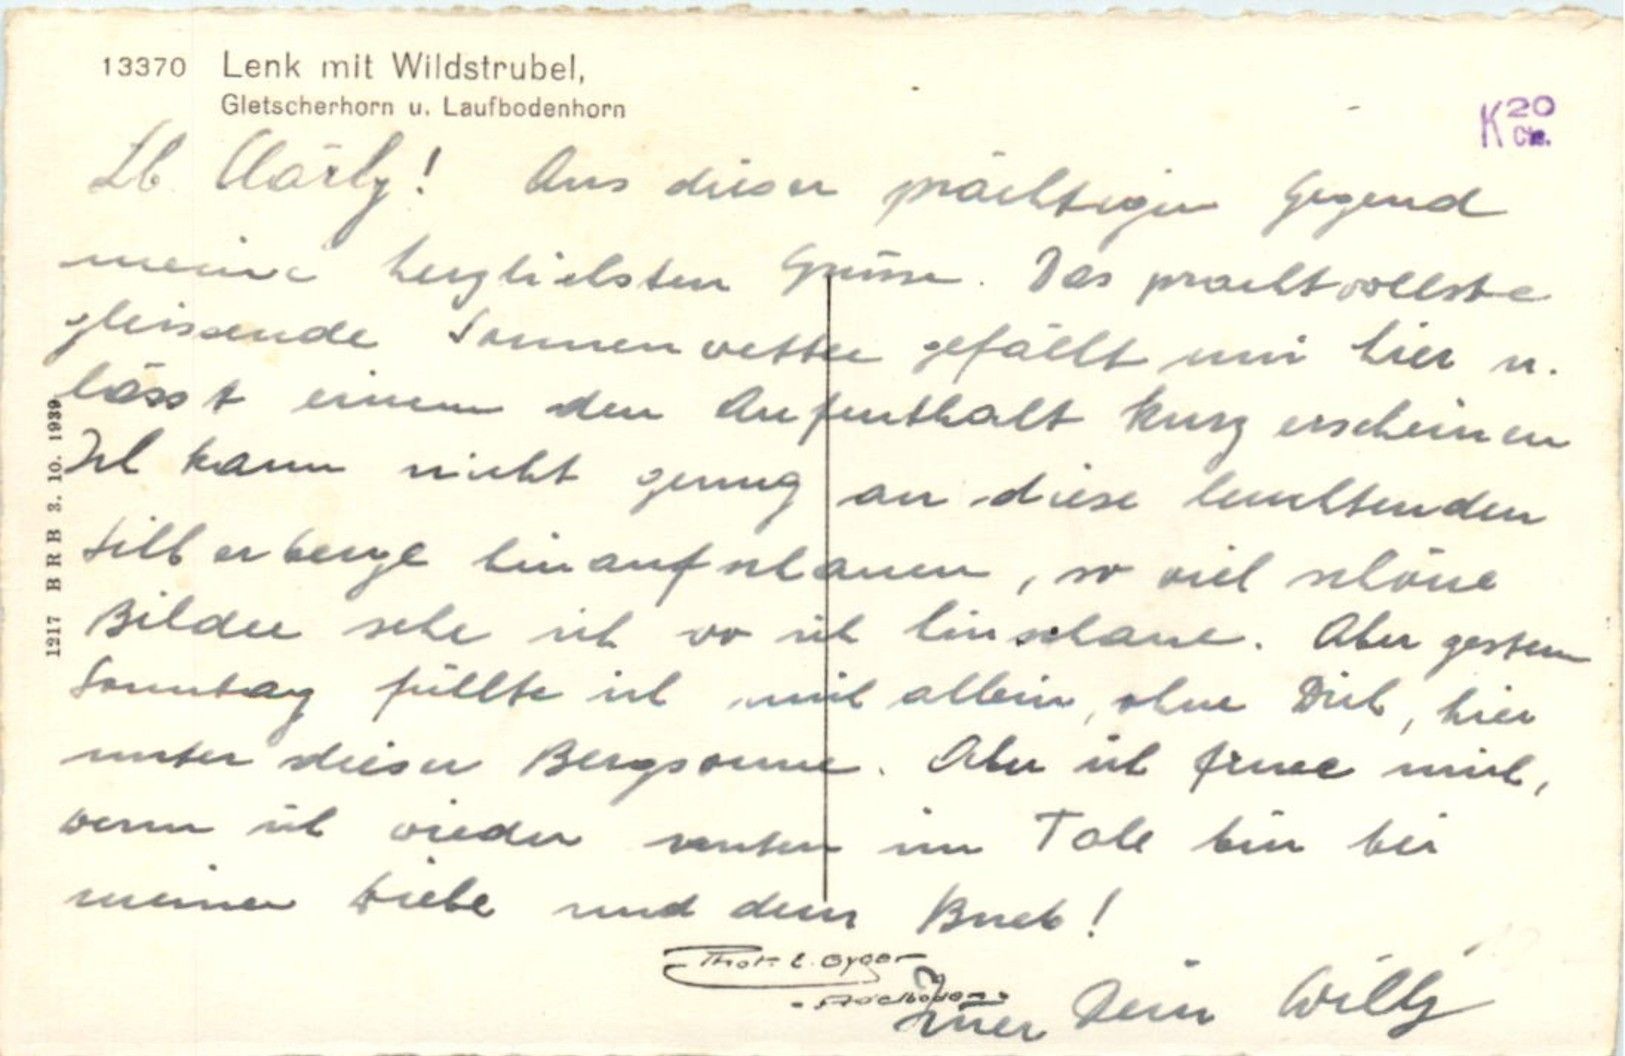 13370 Lenk mit Wildstrubel,
Gletscherhorn u. Laufbodenhorn
K 20 Cts.
Lb Clärly! Aus dieser prächtigen Gegend
meine herzlichsten Grüsse. Das prachtvollste
gleissende Sonnenwetter gefällt mir hier u.
lässt einem den Aufenthalt kurz erscheinen
Ich kann nicht genug an diese leuchtenden
Silberberge hinaufschauen, so viel schöne
Bilder sehe ich wo ich hinschaue. Aber gestern
Sonntag fühlte ich mich allein, ohne Dich, hier
unter dieser Bergsonne. Aber ich freue mich,
wenn ich wieder unten im Tale bin bei
meiner Liebe und dem Bueb!
Phot. E. Gyger
Adelboden
Imer Dein Willy
1217 BRB 3. 10. 1939